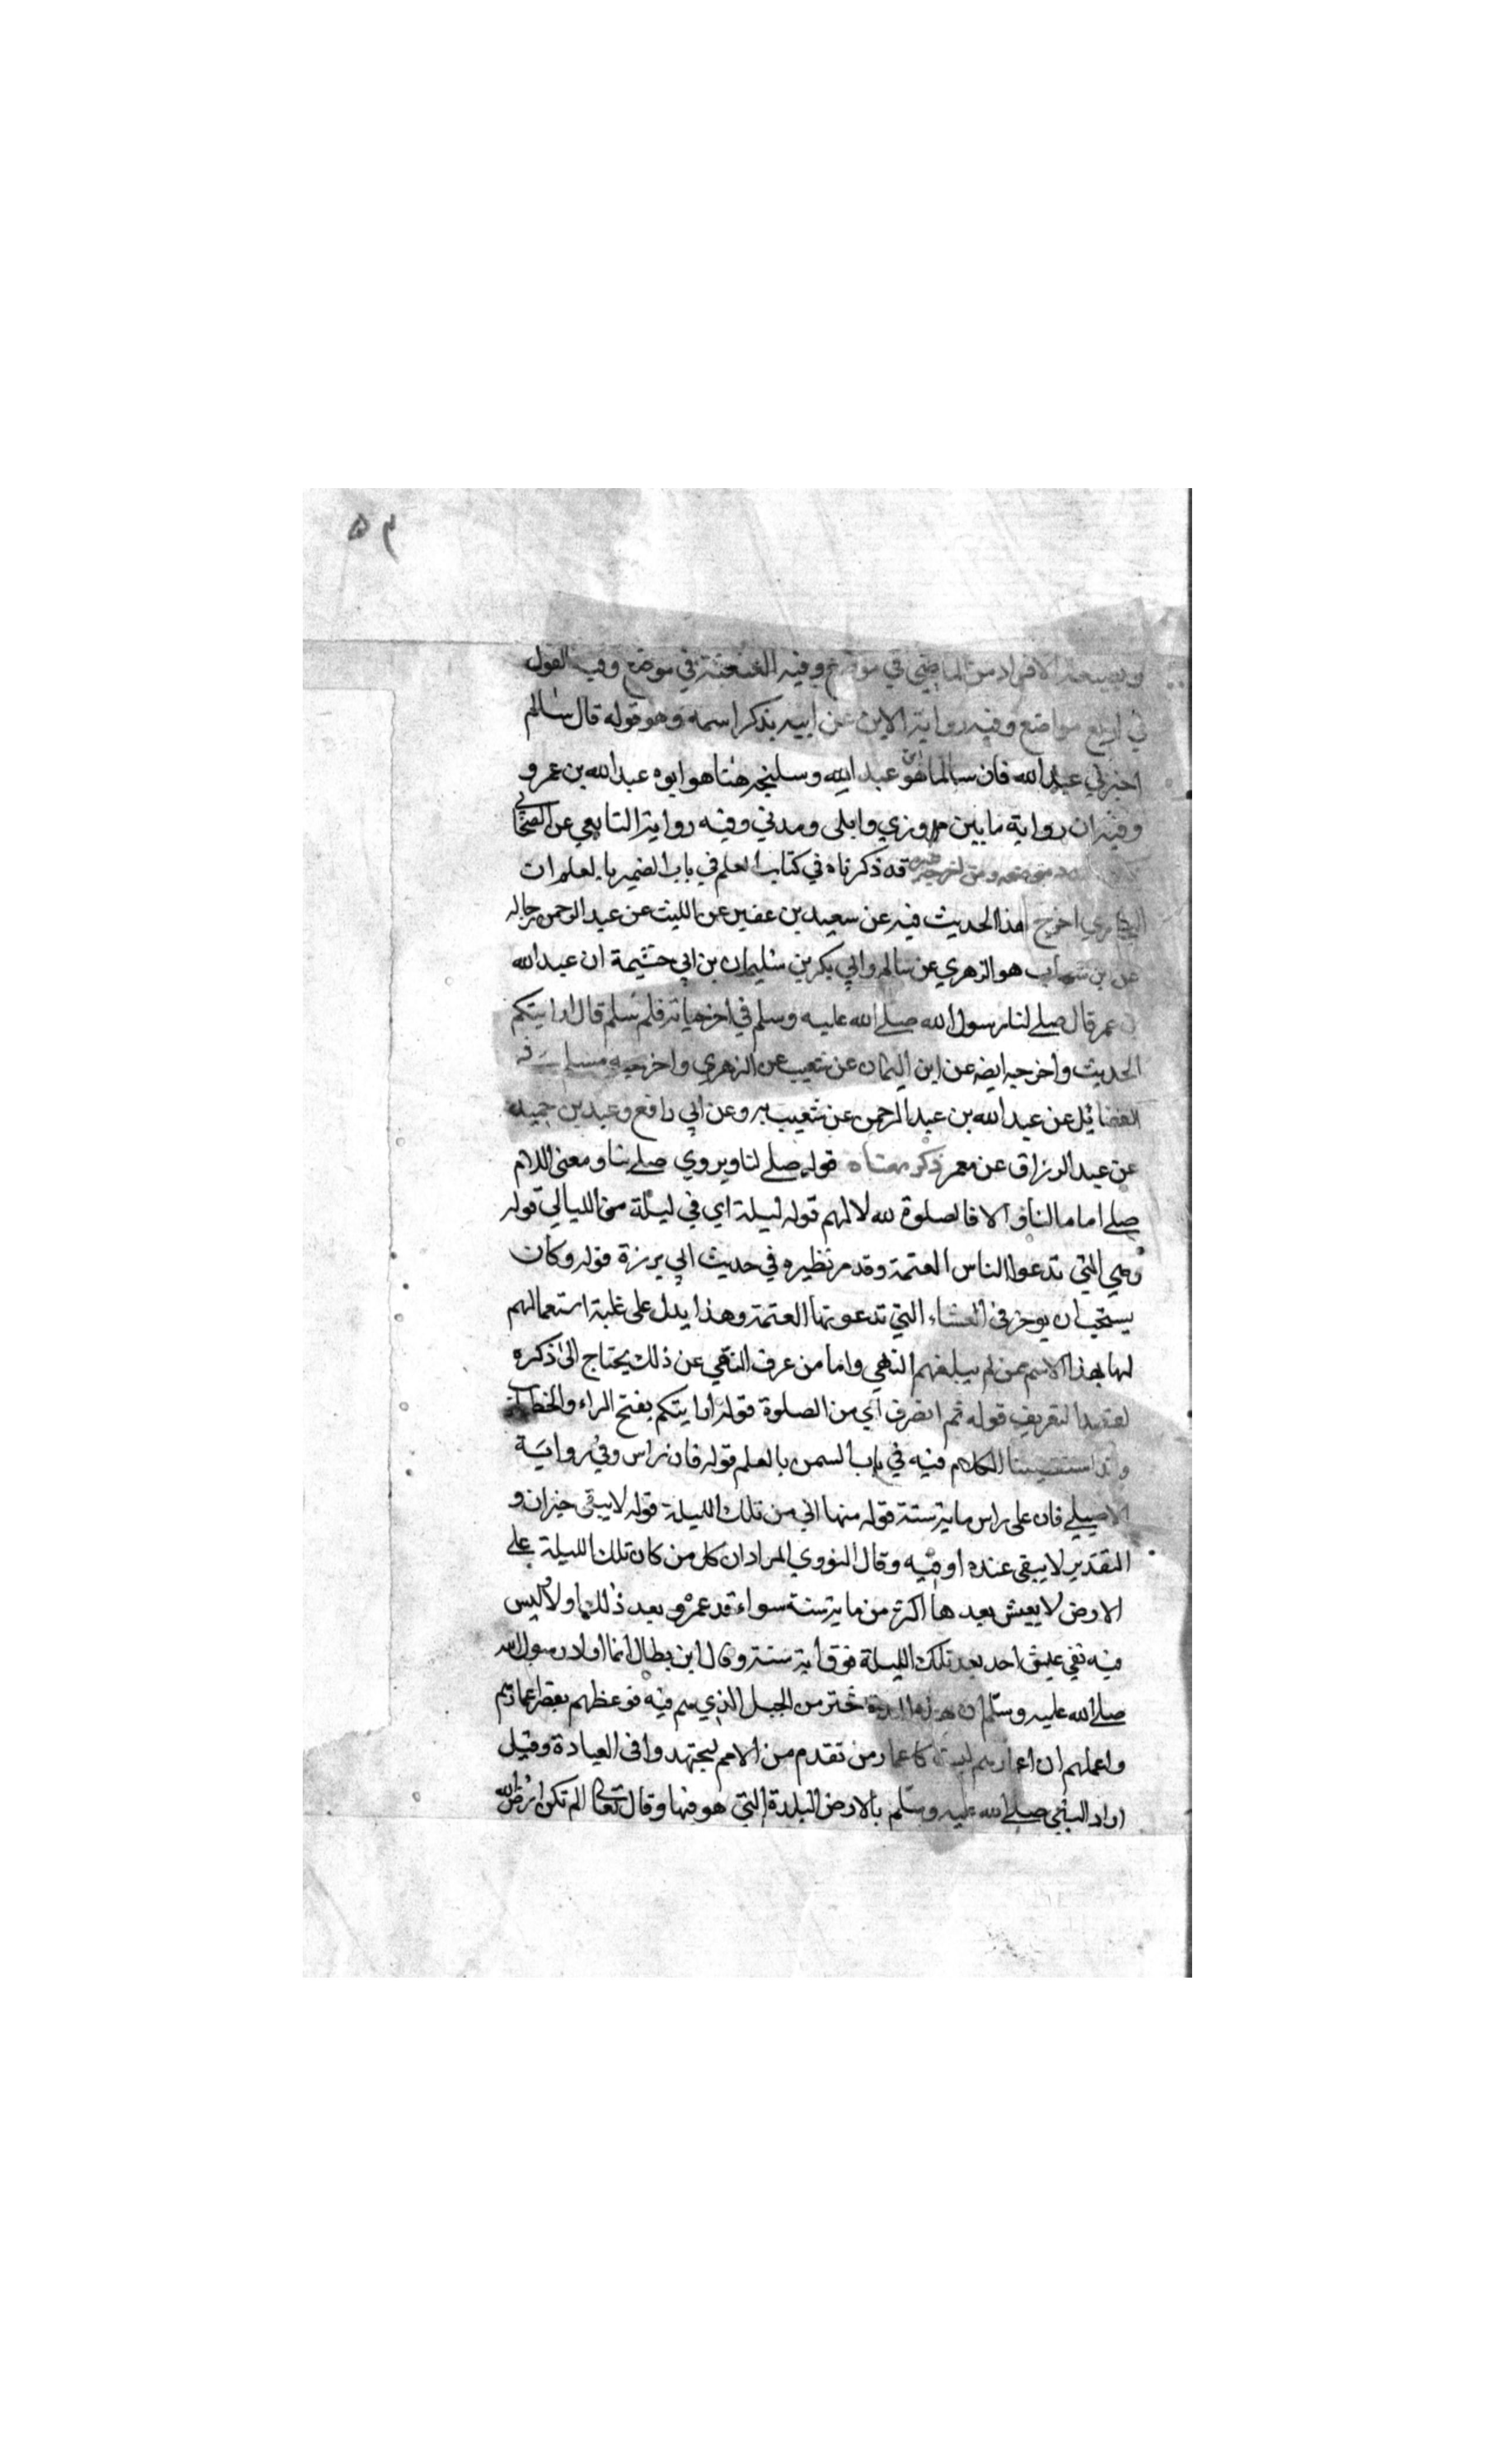 ٥٣
وبصيغة الافراد من الماضى في موضع وفيه العنعنة في موضع وفيه القول
في اربع مواضع وفيه رواية الابن عن ابيه بذكر اسمه وهو قوله قال سالم
اخبرني عبد الله فان سالما هو ابن عبد الله وشيخه هنا هو ابوه عبد الله بن عمر و
وفيه ان رواية ما بين مروزي وايلى ومدني وفيه رواية التابعي عن الصحابي
موضعه ومن اخرجه غيره قد ذكرناه في كتاب العلم في باب السمر بالعلم ان
البخاري اخرج هذا الحديث فيه عن سعيد بن عفير عن الليث عن عبد الرحمن بن خالد
عن ابن شهاب هو الزهري عن سالم وابي بكر بن سليمان بن ابي حثيمة ان عبد الله
بن عمر قال صلے لنا رسول الله صلے الله عليه وسلم في اخر حياته فلم سلم قال ارايتكم
الحديث واخرجه ايضه عن ابن اليمان عن شعيب عن الزهري واخرجه مسلم في
الفضائل عن عبد الله بن عبد الرحمن عن شعيب به وعن ابي رافع وعبد بن حميد
عن عبد الرزاق عن معمر ذكر معناه قوله صلے لنا ويروي صلے بنا ومعنى اللام
صلے اماما لنا و الا فالصلوة لله لا لهم قوله ليلة اي في ليلة من الليالي قوله
وهي التي تدعوا الناس العتمة وقد مر نظيره في حديث ابي برزة قوله وكان
يستحب ان يوخر في العشاء التي تدعونها العتمة وهذا يدل على غلبة استعمالهم
لها بهذا الاسم عمن لم يبلغهم النهي واما من عرف النهي عن ذلك يحتاج الى ذكره
لقصد التعريف قوله ثم انصرف اي من الصلوة قوله ارايتكم بفتح الراء والخطاب
وقد استقصينا الكلام فيه في باب السمر بالعلم قوله فان راس وفي رواية
الاصيلے فان على راس ماية سنة قوله منها اي من تلك الليلة قوله لا يبقى خبر ان و
التقدير لا يبقى عنده او فيه وقال النووي المراد ان كل من كان تلك الليلة علے
الارض لا يعيش بعدها اكثر من ماية سنة سواء قد عمر و بعد ذلك او لا وليس
فيه نفي عيش احد بعد تلك الليلة فوق ماية سنة وقال ابن بطال انما اراد رسول الله
صلے الله عليه وسلم ان هذه المدة تخترم الجيل الذي هم فيه فوعظهم بقصر اعمارهم
واعلمهم ان اعمارهم ليست كاعمار من تقدم من الامم ليجتهدوا فى العبادة وقيل
اراد النبي صلے الله عليه وسلم بالارض البلدة التي هو فيها وقال تعالى الم تكن ارض الله